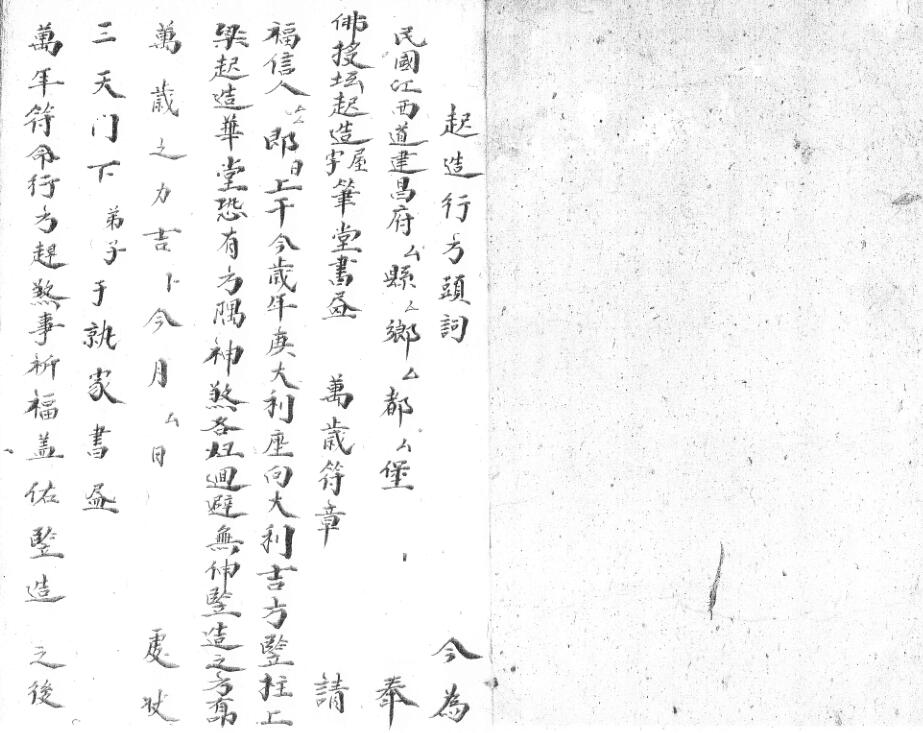 起造行方頭詞 今為
民國江西道建昌府厶縣厶鄉厶都厶堡 奉
佛授坛起造屋宇筆堂書昼 萬歲符章 請
福信人厶郎日上干今歲年庚大利座向大利吉方竪拄上
梁起造華堂恐有方隅神煞各迴避無伸竪造之方
萬歲之力吉卜今月厶日 處状
三天门下弟子于執家書昼
萬年符命行方起煞事祈福盖佑竪造之後